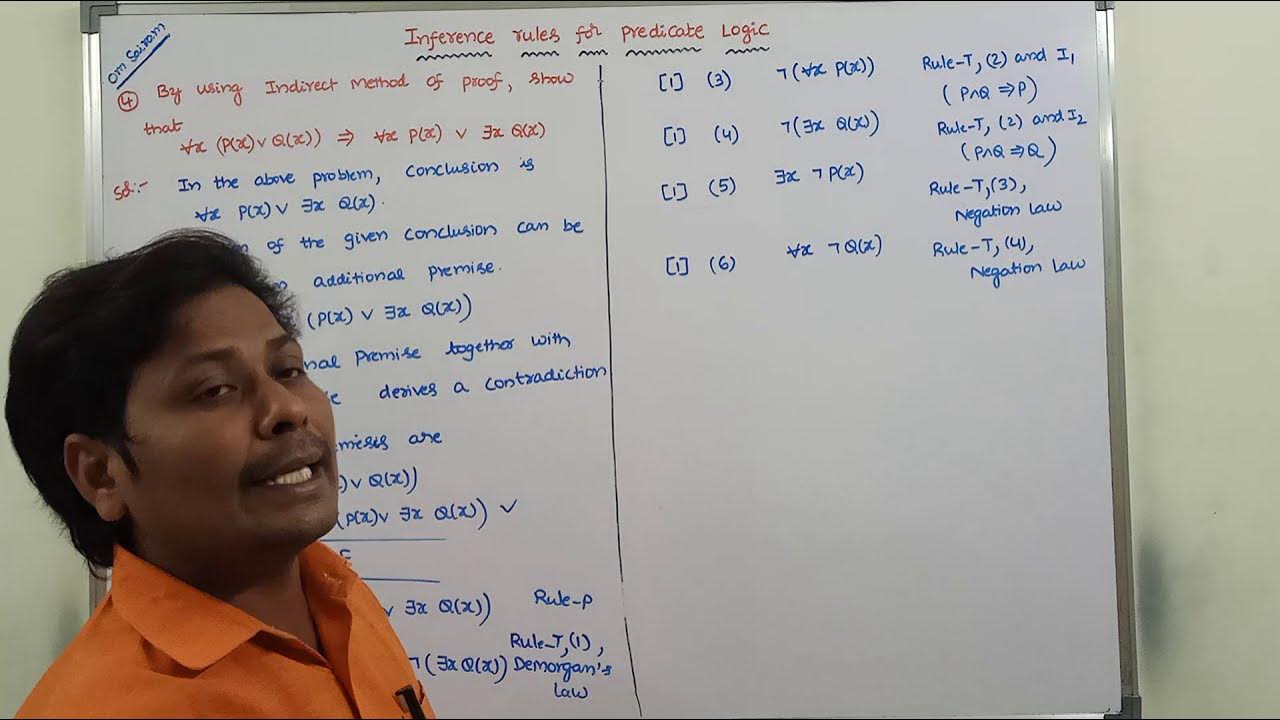 Om Sairam
Inference rules for predicate Logic
④ By using Indirect method of proof, show
that
∀x (P(x) ∨ Q(x)) ⇒ ∀x P(x) ∨ ∃x Q(x)
Sol:- In the above problem, conclusion is
∀x P(x) ∨ ∃x Q(x).
of the given conclusion can be
additional premise.
(P(x) ∨ ∃x Q(x))
premise together with
derives a contradiction
are
) ∨ Q(x))
(P(x) ∨ ∃x Q(x)) ✓
∨ ∃x Q(x)) Rule-P
¬(∃x Q(x)) Rule-T, (1),
Demorgan's
law
[1] (3) ¬(∀x P(x)) Rule-T, (2) and I₁
(P∧Q ⇒ P)
[1] (4) ¬(∃x Q(x)) Rule-T, (2) and I₂
(P∧Q ⇒ Q)
[1] (5) ∃x ¬P(x) Rule-T, (3),
Negation law
[1] (6) ∀x ¬Q(x) Rule-T, (4),
Negation law